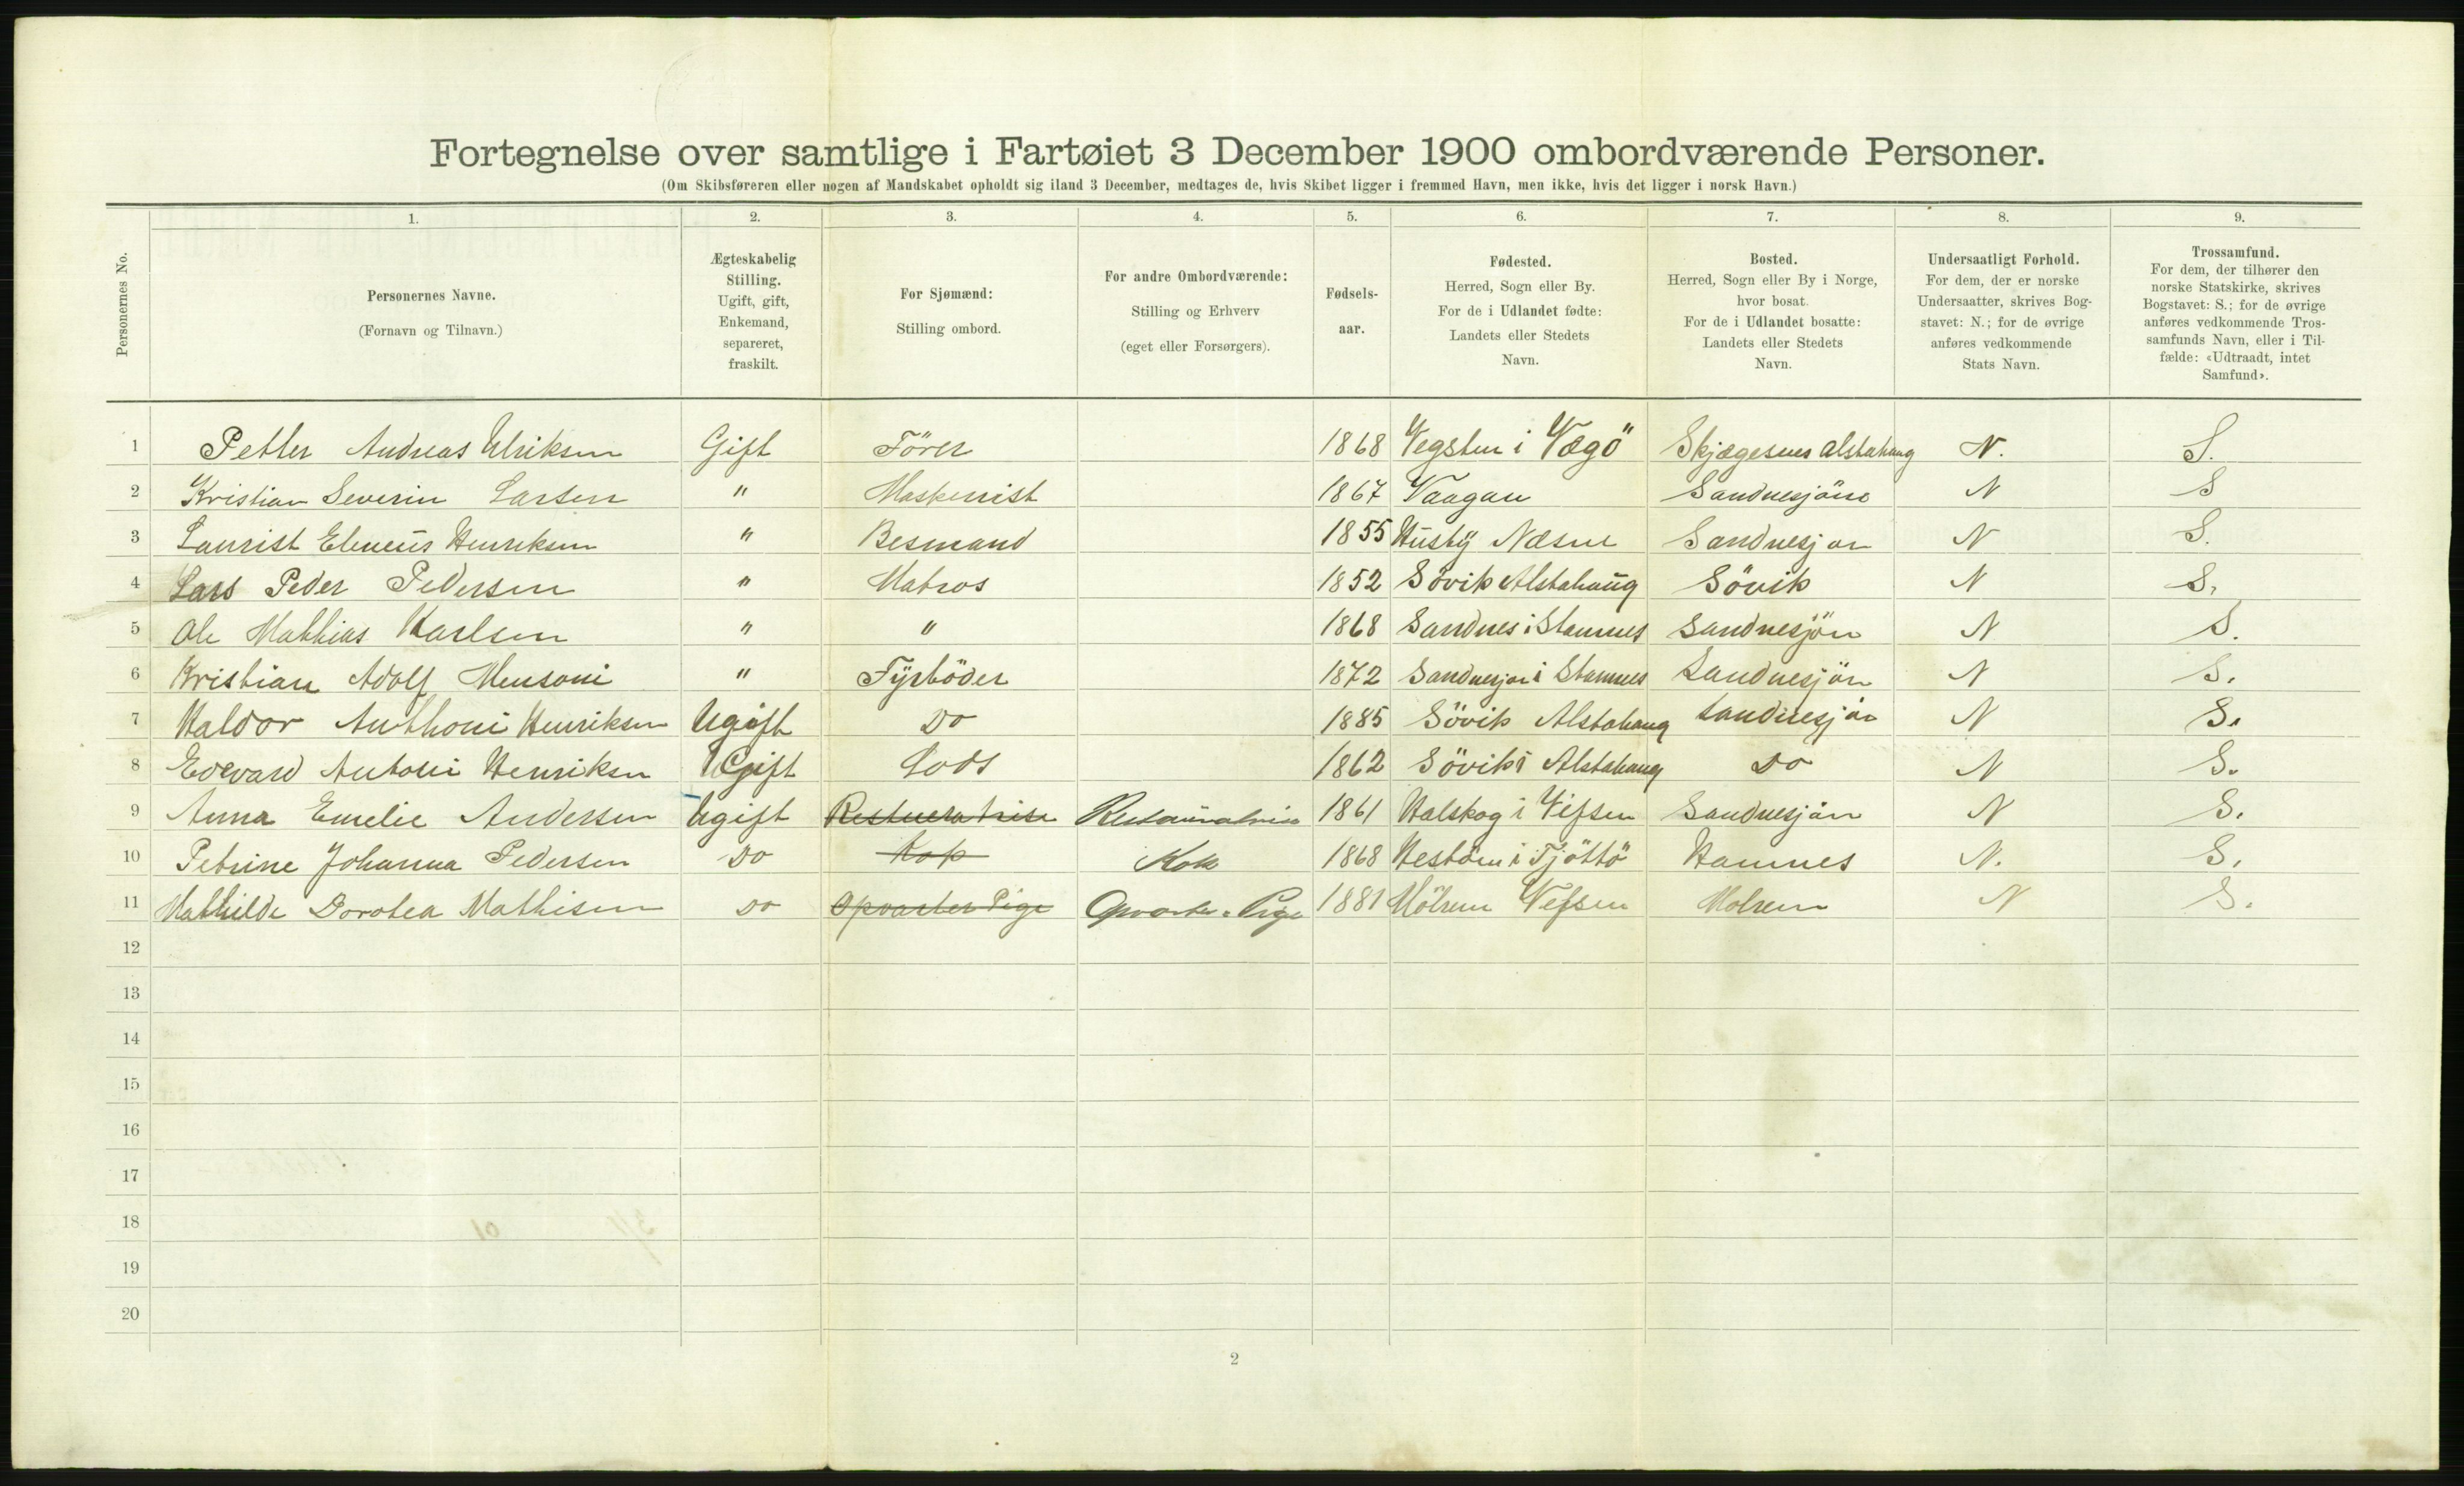 Fortegnelse over samtlige i Fartøiet 3 December 1900 ombordværende Personer.
(Om Skibsføreren eller nogen af Mandskabet opholdt sig iland 3 December, medtages de, hvis Skibet ligger i fremmed Havn, men ikke, hvis det ligger i norsk Havn.)
1. 2. 3. 4. 5. 6. 7. 8. 9.
Personernes No.
Personernes Navne.
(Fornavn og Tilnavn.)
Ægteskabelig
Stilling.
Ugift, gift,
Enkemand,
separeret,
fraskilt.
For Sjømænd:
Stilling ombord.
For andre Ombordværende:
Stilling og Erhverv
(eget eller Forsørgers).
Fødsels-
aar.
Fødested.
Herred, Sogn eller By.
For de i Udlandet fødte:
Landets eller Stedets
Navn.
Bosted.
Herred, Sogn eller By i Norge,
hvor bosat.
For de i Udlandet bosatte:
Landets eller Stedets
Navn.
Undersaatligt Forhold.
For dem, der er norske
Undersaatter, skrives Bog-
stavet: N.; for de øvrige
anføres vedkommende
Stats Navn.
Trossamfund.
For dem, der tilhører den
norske Statskirke, skrives
Bogstavet: S.; for de øvrige
anføres vedkommende Tros-
samfunds Navn, eller i Til-
fælde: «Udtraadt, intet
Samfund».
1 Petter Andreas Ulriksen Gift Förer 1868 Vegsten i Vægö Skjægesnes Alstahaug N. S.
2 Kristian Severin Larsen " Maskenist 1867 Vaagan Sandnesjöen N S
3 Laurist Eleneus Henriksen " Besmand 1855 Husby Næsne Sandnesjøn N S.
4 Lars Peder Pedersen " Matros 1852 Sövik Alstahaug Sövik N S.
5 Ole Mathias Karlsen " " 1868 Sandnes i Stamnes Sandnesjön N S.
6 Kristian Adolf Mensoni " Fyrböder 1872 Sandnesjøn i Stamnes Sandnesjön N S.
7 Haldor Anthoni Henriksen Ugift Do 1885 Sövik Alstahaug Sandnesjön N S.
8 Edevard Antoni Henriksen Gift Lods 1862 Sövik i Alstahaug Do N S.
9 Anna Emelie Andersen Ugift Restueratrise Restauratrise 1861 Halskog i Vefsen Sandnesjön N S.
10 Petrine Johanna Pedersen Do Kok Kok 1868 i Tjöttö Hamnes N. S.
11 Mathilde Dorotea Mathisen Do Opvarter Pige Opvarter-Pige 1881 Hölrem Vefsen Holrem N S.
12
13
14
15
16
17
18
19
20
2